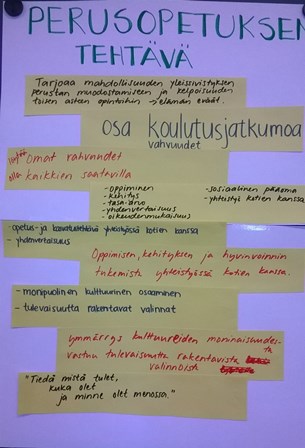 PERUSOPETUKSEN
TEHTÄVÄ
Tarjoaa mahdollisuuden yleissivistyksen
perustan muodostamiseen ja kelpoisuuden
toisen asteen opintoihin → elämän eväät.
osa koulutusjatkumoa
vahvuudet
Omat vahvuudet
kaikkien saatavilla
- oppiminen
- kehitys
- tasa-arvo
- yhdenvertaisuus
- oikeudenmukaisuus
- sosiaalinen pääoma
- yhteistyö kotien kanssa
- opetus- ja kasvatustehtävä yhteistyössä kotien kanssa
- yhdenvertaisuus
Oppimisen, kehityksen ja hyvinvoinnin
tukemista yhteistyössä kotien kanssa.
- monipuolinen kulttuurinen osaaminen
- tulevaisuutta rakentavat valinnat
ymmärrys kulttuureiden moninaisuudesta
vastuu tulevaisuutta rakentavista
valinnoista
"Tiedä mistä tulet,
kuka olet
ja minne olet menossa."